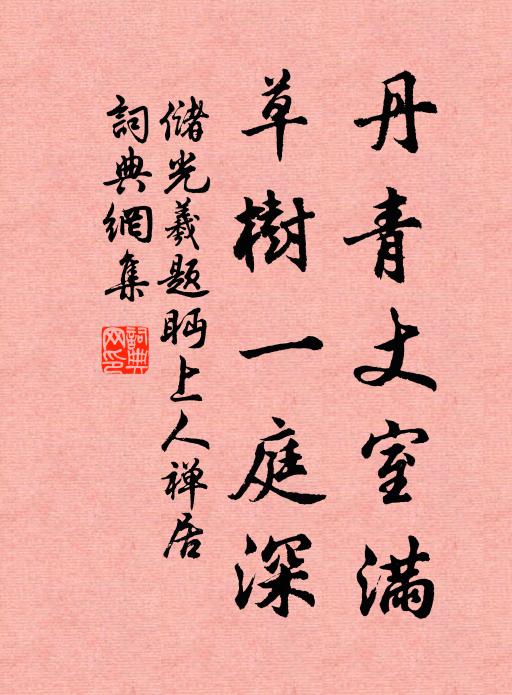 丹青丈室滿
草樹一庭深
儲光羲題眄上人禅居
詞典網集
詞典网印